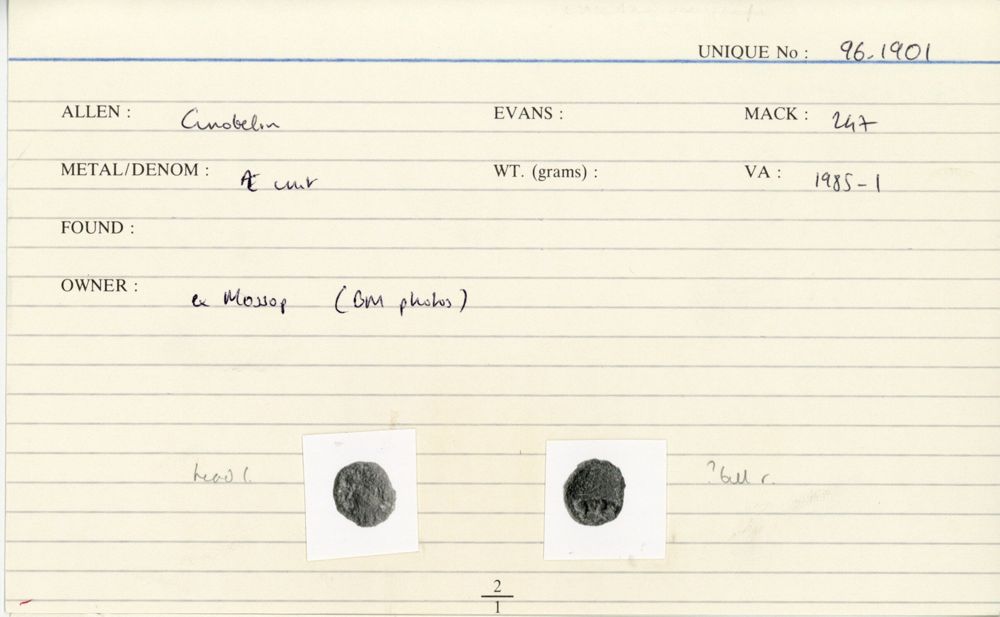 UNIQUE No : 96.1901
ALLEN : Cunobelin EVANS : MACK : 247
METAL/DENOM : Æ unit WT. (grams) : VA : 1985-1
FOUND :
OWNER : ex Mossop (BM photos)
head l. ?bull r.
2
1